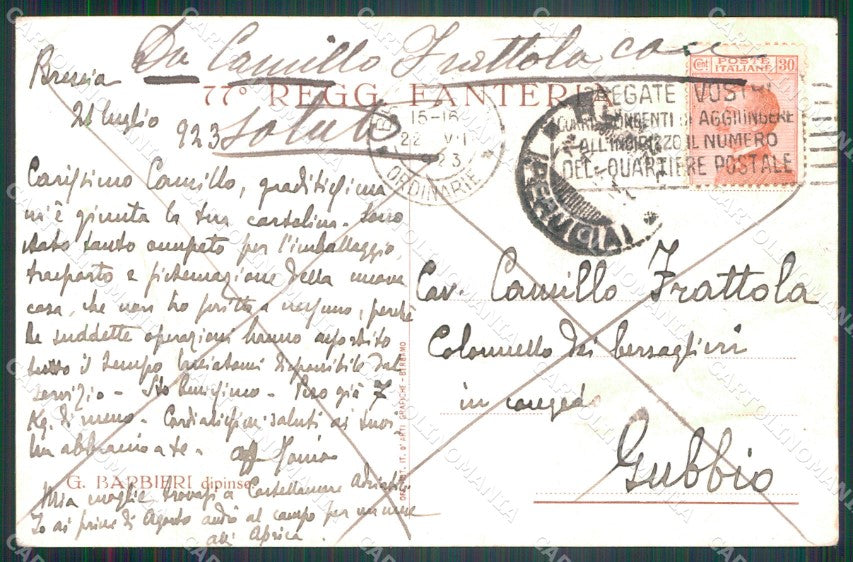 Da Camillo Frattola
saluti
77° REGG. FANTERIA
Brescia
21 luglio
923
Carissimo Camillo, graditissima
mi è giunta la tua cartolina. Sono
stato tanto occupato per l'imballaggio,
trasporto e sistemazione della nuova
casa, che non ho scritto a nessuno, perché
le suddette operazioni hanno assorbito
tutto il tempo lasciatomi disponibile dal
servizio - Sto benissimo - Peso già 7
Kg. di meno - Cordialissimi saluti ai tuoi
Un abbraccio a te - aff
G. BARBIERI dipinse
Mia moglie trovasi a Castellamare Adriatico
Io ai primi di Agosto andrò al campo per un mese
all' Aprica.
15-16
22 VII
23
ORDINARIE
POSTE
ITALIANE
Cent 30
VOSTRI
CORRISPONDENTI DI AGGIUNGERE
ALL'INDIRIZZO IL NUMERO
DEL QUARTIERE POSTALE
(PERUGIA)
Cav. Camillo Frattola
Colonnello dei bersaglieri
in congedo
Gubbio
IST. IT. D'ARTI GRAFICHE - BERGAMO
CARTOLINOMANIA